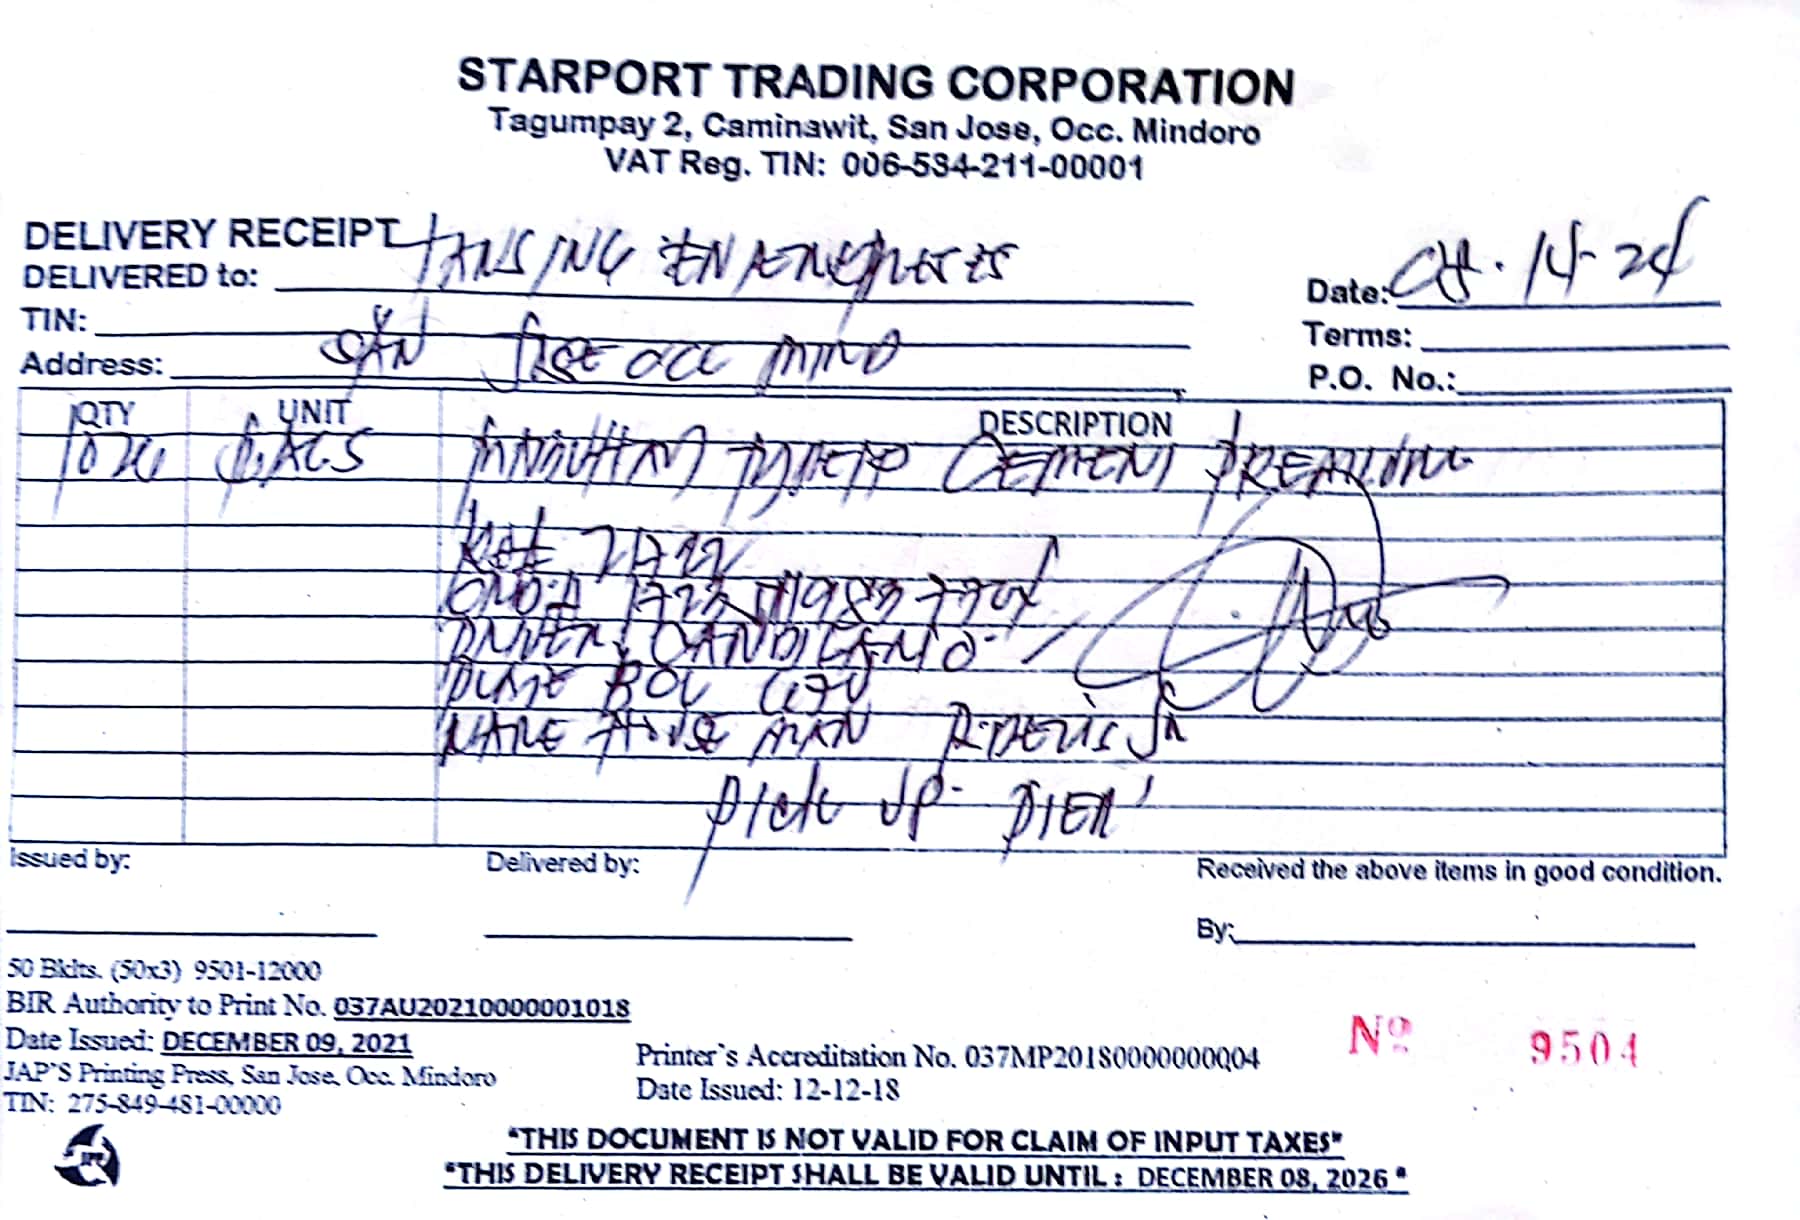 STARPORT TRADING CORPORATION
Tagumpay 2, Caminawit, San Jose, Occ. Mindoro
VAT Reg. TIN: 006-534-211-00001
DELIVERY RECEIPT
DELIVERED to: TANSING ENTERPRISES
Date: 14-24
TIN:
Terms:
Address: SAN JOSE OCC MIND
P.O. No.:
QTY UNIT DESCRIPTION
BAGS CEMENT
DRIVER CANDILARIO
PLATE
WARE HOUSE MAN JR
PICK UP PIER
Issued by: Delivered by: Received the above items in good condition.
By:
50 Bklts. (50x3) 9501-12000
BIR Authority to Print No. 037AU20210000001018
Date Issued: DECEMBER 09, 2021
JAP'S Printing Press, San Jose, Occ. Mindoro
TIN: 275-849-481-00000
Printer's Accreditation No. 037MP20180000000004
Date Issued: 12-12-18
Nº 9504
"THIS DOCUMENT IS NOT VALID FOR CLAIM OF INPUT TAXES"
"THIS DELIVERY RECEIPT SHALL BE VALID UNTIL : DECEMBER 08, 2026 "